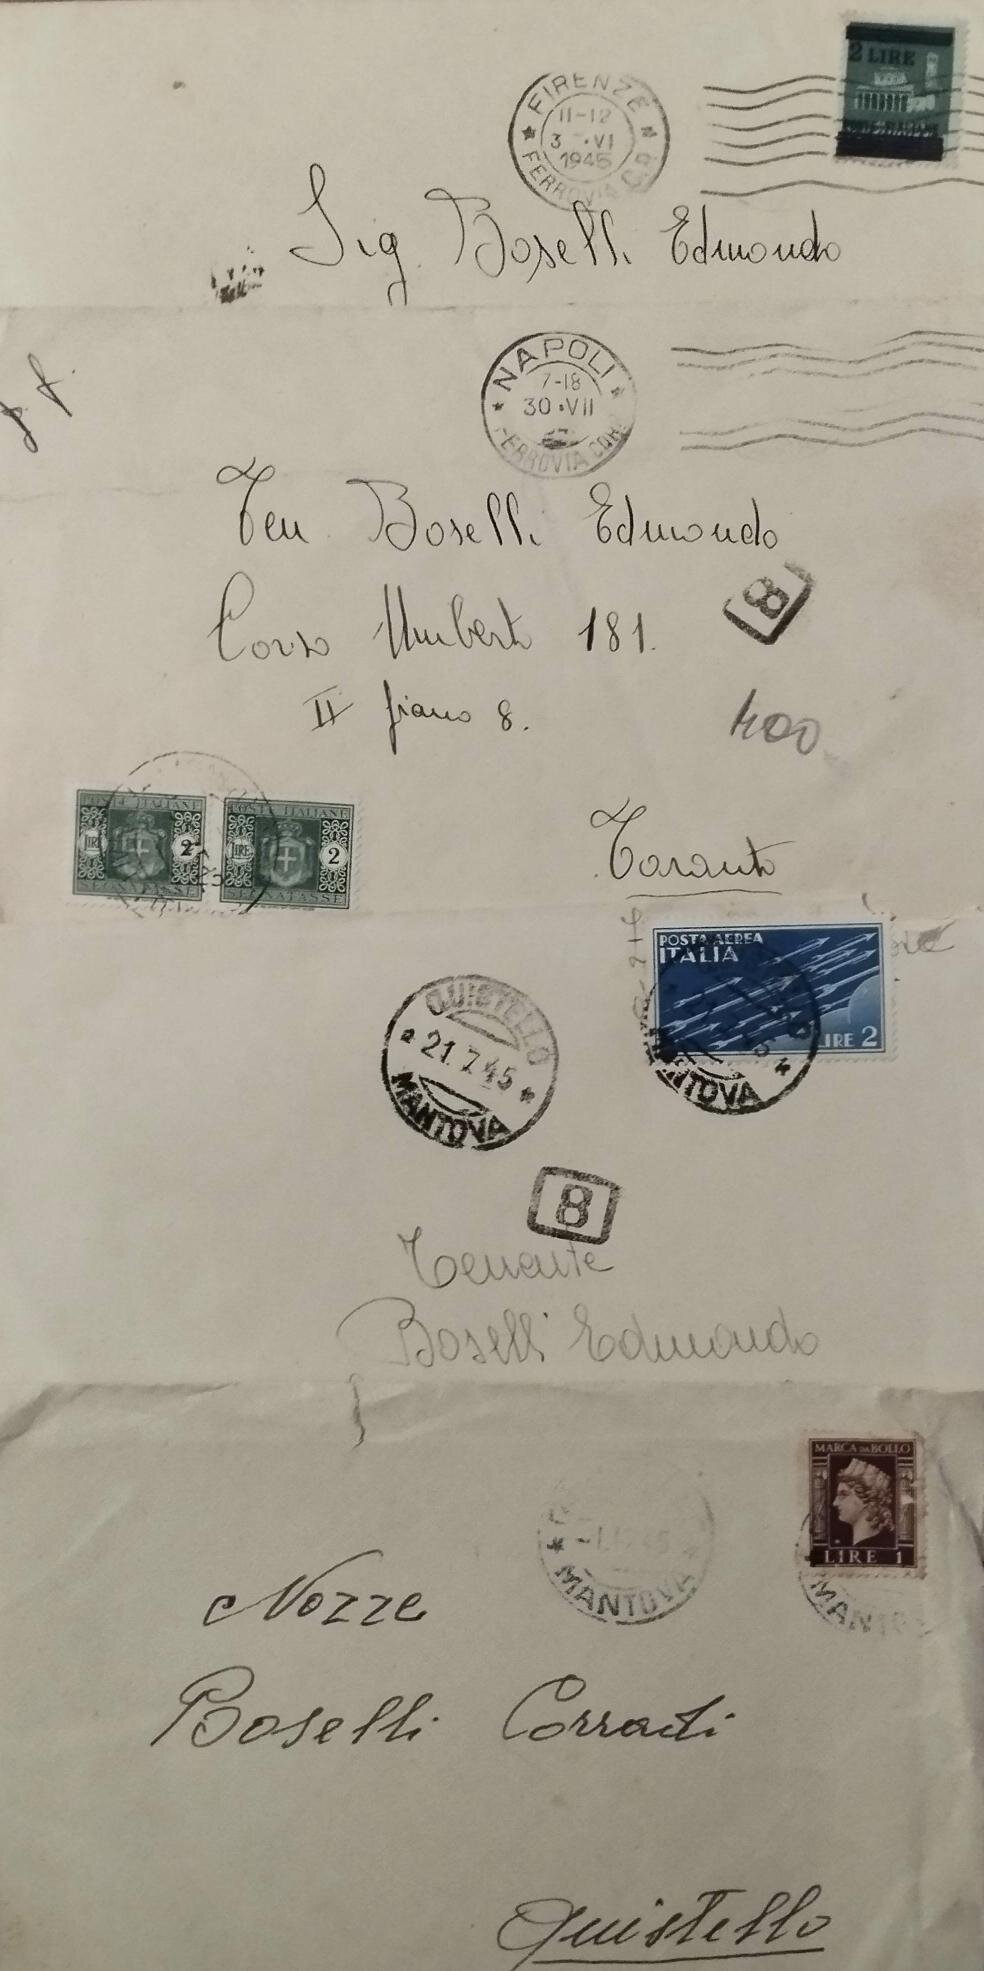 2 LIRE
FIRENZE
11-12
3 VI
1945
FERROVIA
Sig. Boselli Edmondo
NAPOLI
7-18
30·VII
FERROVIA COR
Ten Boselli Edmondo
8
Corso Umberto 181.
II piano 8.
400
POSTE ITALIANE
LIRE 2
SEGNATASSE
POSTE ITALIANE
LIRE 2
SEGNATASSE
Taranto
POSTA AEREA
ITALIA
LIRE 2
MANTOVA
QUISTELLO
21.7.45
MANTOVA
8
Tenente
Boselli Edmondo
MARCA DA BOLLO
LIRE 1
MANTOVA
MANTO
Nozze
Boselli Corradi
Quistello